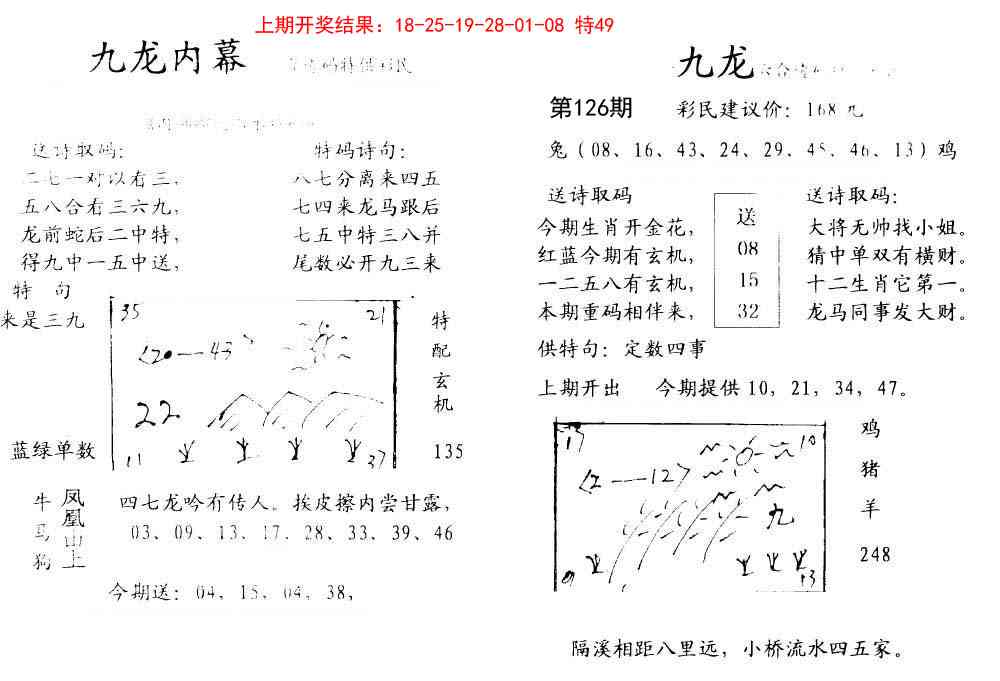 上期开奖结果：18-25-19-28-01-08 特49
九龙内幕
码特供彩民
送诗取码：
二七一对以右三，
五八合右三六九，
龙前蛇后二中特，
得九中一五中送，
特码诗句：
八七分离来四五
七四来龙马跟后
七五中特三八并
尾数必开九三来
特 句
来是三九
蓝绿单数
35 21
<20—43>
22
11 37
特配玄机
135
牛马狗
凤凰山上
四七龙吟有传人。挨皮擦内尝甘露，
03、09、13、17、28、33、39、46
今期送：04，15，04，38，
九龙
第126期 彩民建议价：168元
兔（08、16、43、24、29、45、46、13）鸡
送诗取码
今期生肖开金花，
红蓝今期有玄机，
一二五八有玄机，
本期重码相伴来，
送
08
15
32
送诗取码：
大将无帅找小姐。
猜中单双有横财。
十二生肖它第一。
龙马同事发大财。
供特句：定数四事
上期开出 今期提供10，21，34，47。
13 10
<2—12>
九
9 13
鸡
猪
羊
248
隔溪相距八里远，小桥流水四五家。